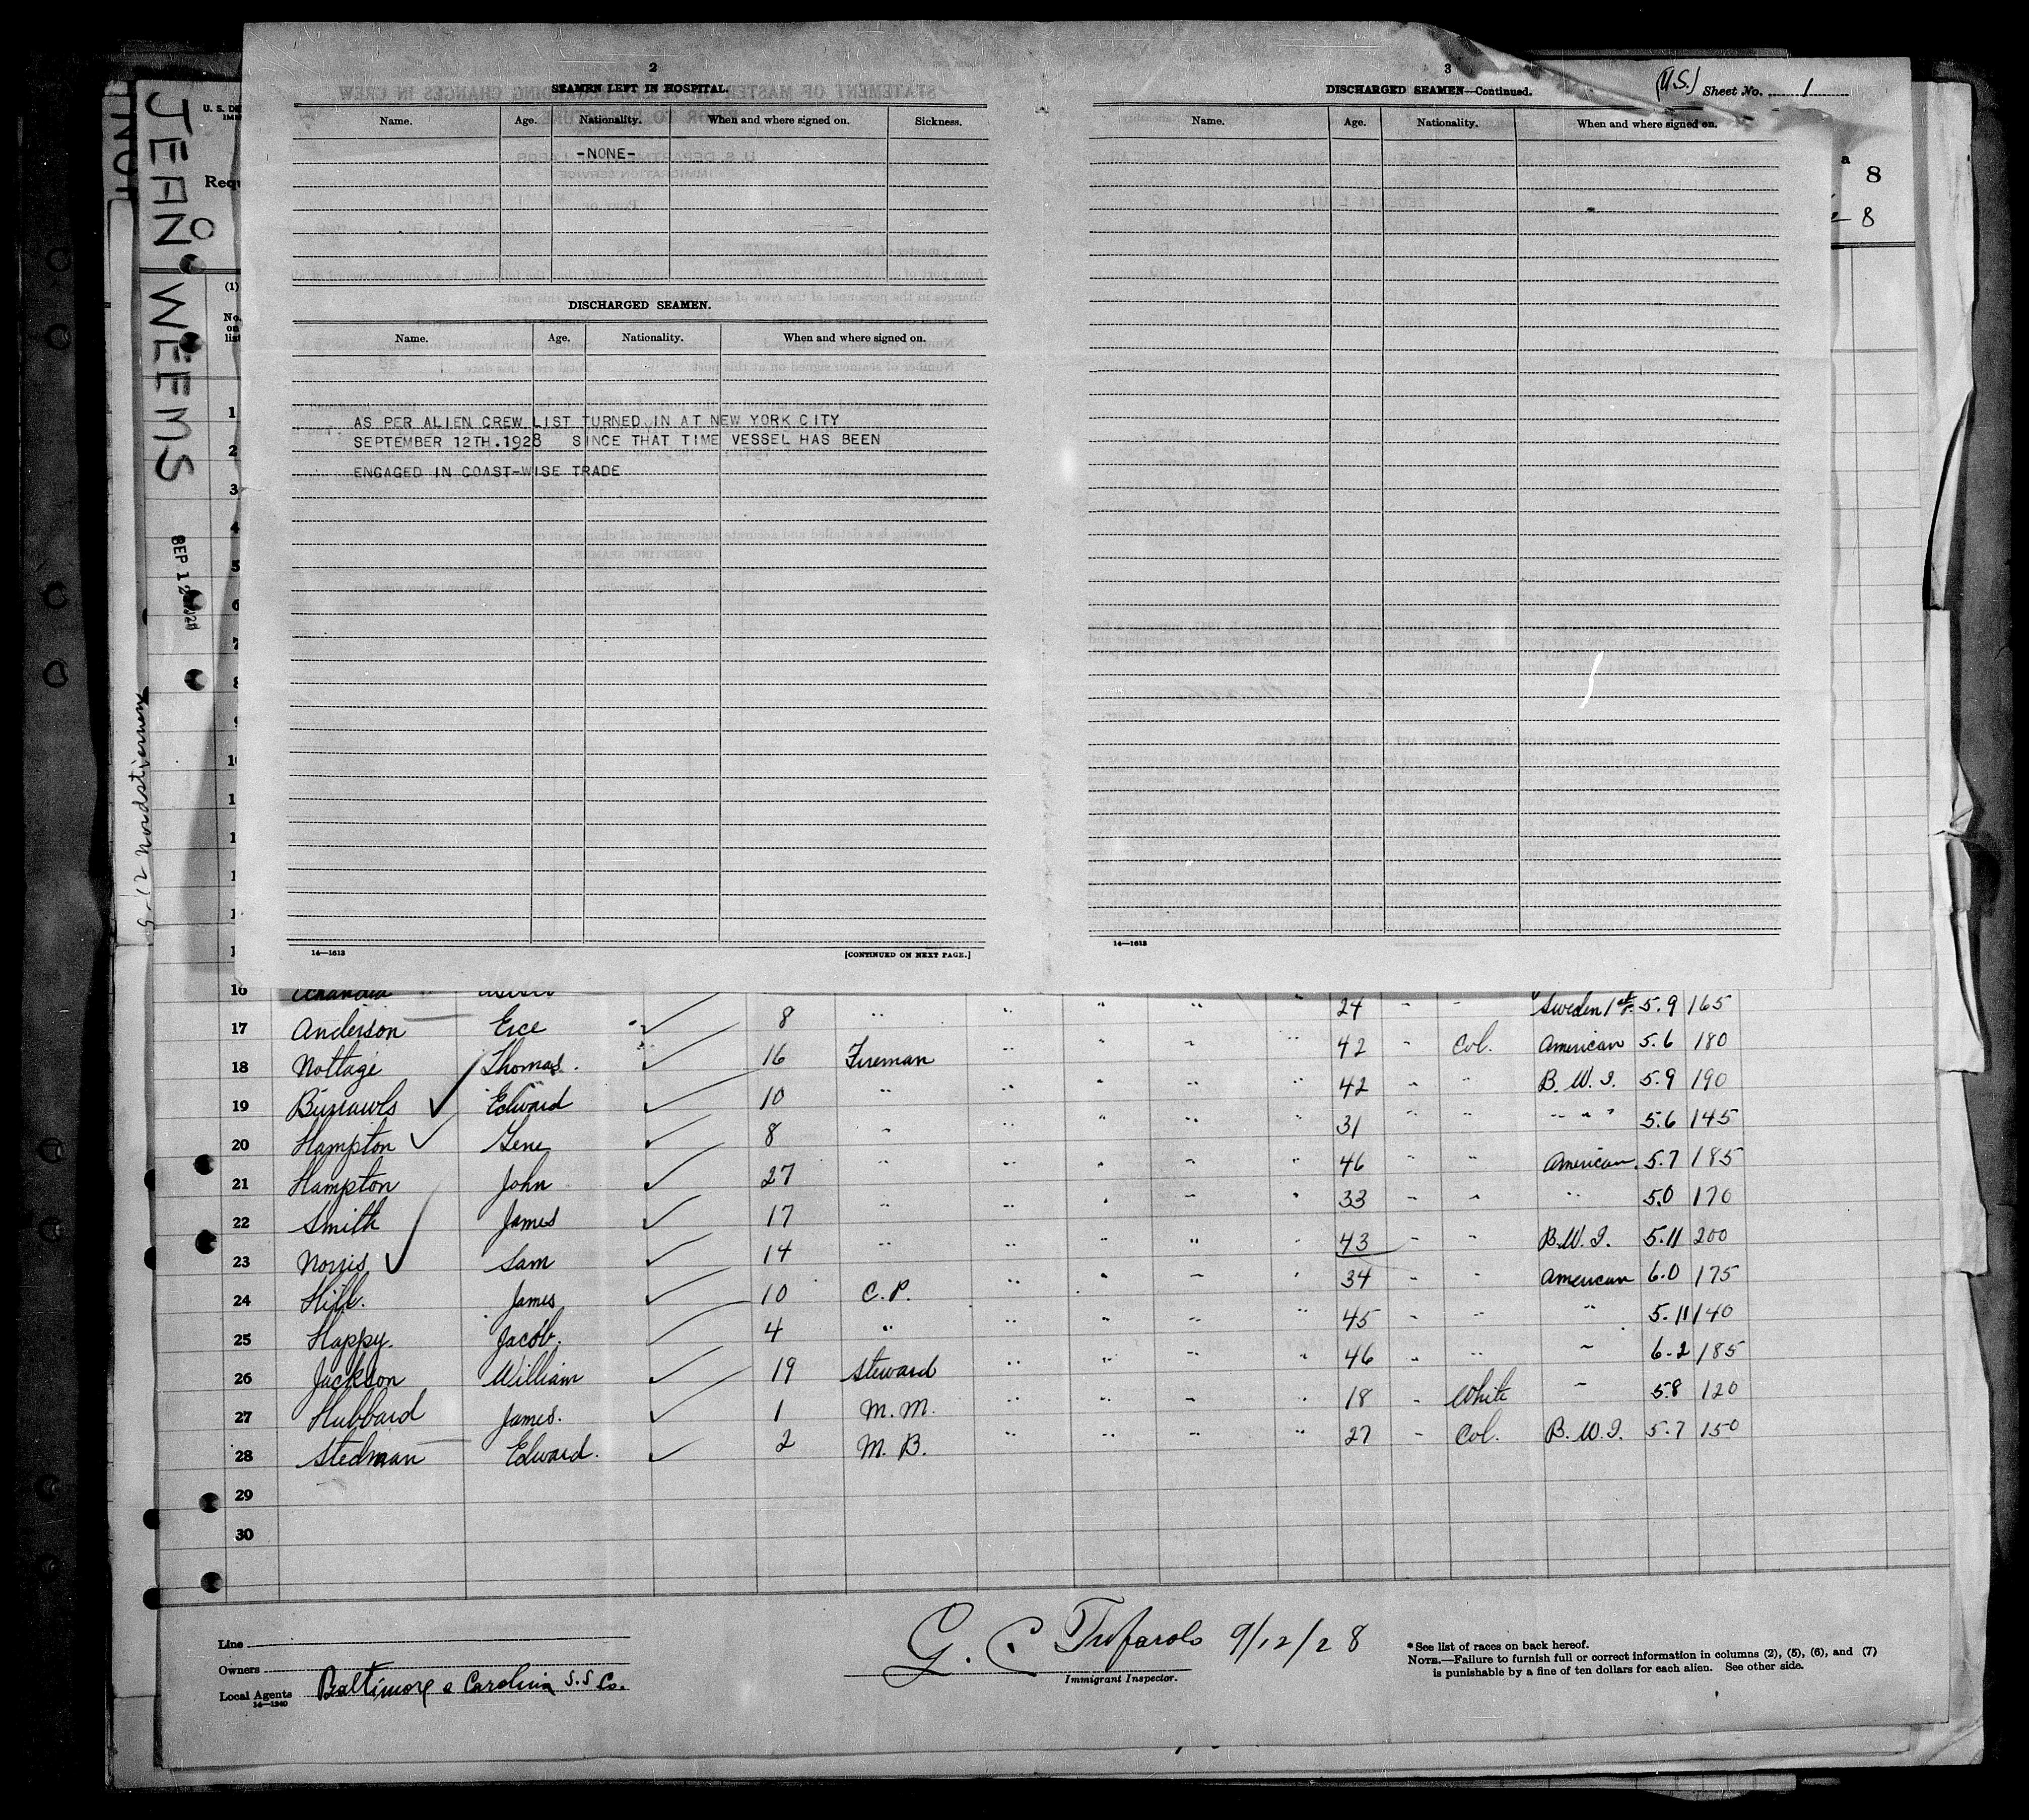 JEAN WEEMS
SEP 12 1928
9-12 Nordstjernen
U. S. DE
(1)
No. on list
2
SEAMEN LEFT IN HOSPITAL.
Name. Age. Nationality. When and where signed on. Sickness.
-NONE-
DISCHARGED SEAMEN.
Name. Age. Nationality. When and where signed on.
AS PER ALIEN CREW LIST TURNED IN AT NEW YORK CITY
SEPTEMBER 12TH.1928 SINCE THAT TIME VESSEL HAS BEEN
ENGAGED IN COAST-WISE TRADE
14—1613
[CONTINUED ON NEXT PAGE.]
3
DISCHARGED SEAMEN—Continued.
(U.S.) Sheet No. 1
Name. Age. Nationality. When and where signed on.
14—1613
8
8
1
2
3
4
5
6
7
8
16
24 " " Sweden 1st P. 5.9 165
17 Anderson Eice 8 " " " " " 42 " Col. American 5.6 180
18 Nottage Thomas. 16 Fireman " " " " 42 " " B.W.I. 5.9 190
19 Burrawls Edward 10 " " " " " 31 " " " " " 5.6 145
20 Hampton Gene 8 " " " " " 46 " " American 5.7 185
21 Hampton John 27 " " " " " 33 " " " 5.0 170
22 Smith James 17 " " " " " 43 " " B.W.I. 5.11 200
23 Norris Sam 14 " " " " " 34 " " American 6.0 175
24 Hill. James 10 C.P. " " " " 45 " " 5.11 140
25 Happy. Jacob. 4 " " " " " 46 " " " 6-2 185
26 Jackson William 19 Steward " " " " 18 " White " 5.8 120
27 Hubbard James. 1 M.M. " " " " 27 " Col. B.W.I. 5.7 150
28 Stedman Edward. 2 M.B.
29
30
Line
Owners
Local Agents Baltimore & Carolina S.S Co.
14—1240
G. C. Tufarolo 9/12/28
Immigrant Inspector.
*See list of races on back hereof.
NOTE.—Failure to furnish full or correct information in columns (2), (5), (6), and (7)
is punishable by a fine of ten dollars for each alien. See other side.